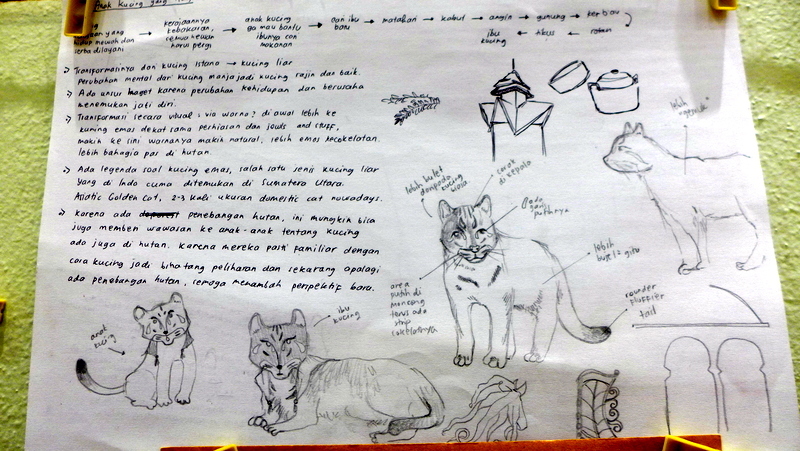 Anak Kucing yang
yang
hidup mewah dan
serba dilayani
kerajaannya
kebakaran,
semua hewan
harus pergi
anak kucing
ga mau bantu
ibunya cari
makanan
cari ibu
baru
matahari
kabut
angin
gunung
kerbau
rotan
tikus
ibu
kucing
Transformasinya dari kucing istana → kucing liar
perubahan mental dari kucing manja jadi kucing rajin dan baik.
Ada unsur maget karena perubahan kehidupan dan berusaha
menemukan jati diri.
Transformasi secara visual: via warna? di awal lebih ke
kuning emas dekat sama perhiasan dan jewels and stuff,
makin ke sini warnanya makin natural, lebih emas kecokelatan.
lebih bahagia pas di hutan.
Ada legenda soal kucing emas, salah satu jenis kucing liar
yang di Indo cuma ditemukan di Sumatera Utara.
Asiatic Golden Cat, 2-3 kali ukuran domestic cat nowadays.
Karena ada penebangan hutan, ini mungkin bisa
juga memberi wawasan ke anak-anak tentang kucing
ada juga di hutan. karena mereka pasti familiar dengan
cara kucing jadi binatang peliharaan dan sekarang apalagi
ada penebangan hutan, semoga menambah perspektif baru.
lebih bulet
daripada
kucing
biasa
corak
di kepala
ada
garis
putihnya
lebih
lebih
buled gitu
area
putih di
moncong
terus ada
strip
cokelatnya
rounder
fluffier
tail
anak
kucing
ibu
kucing